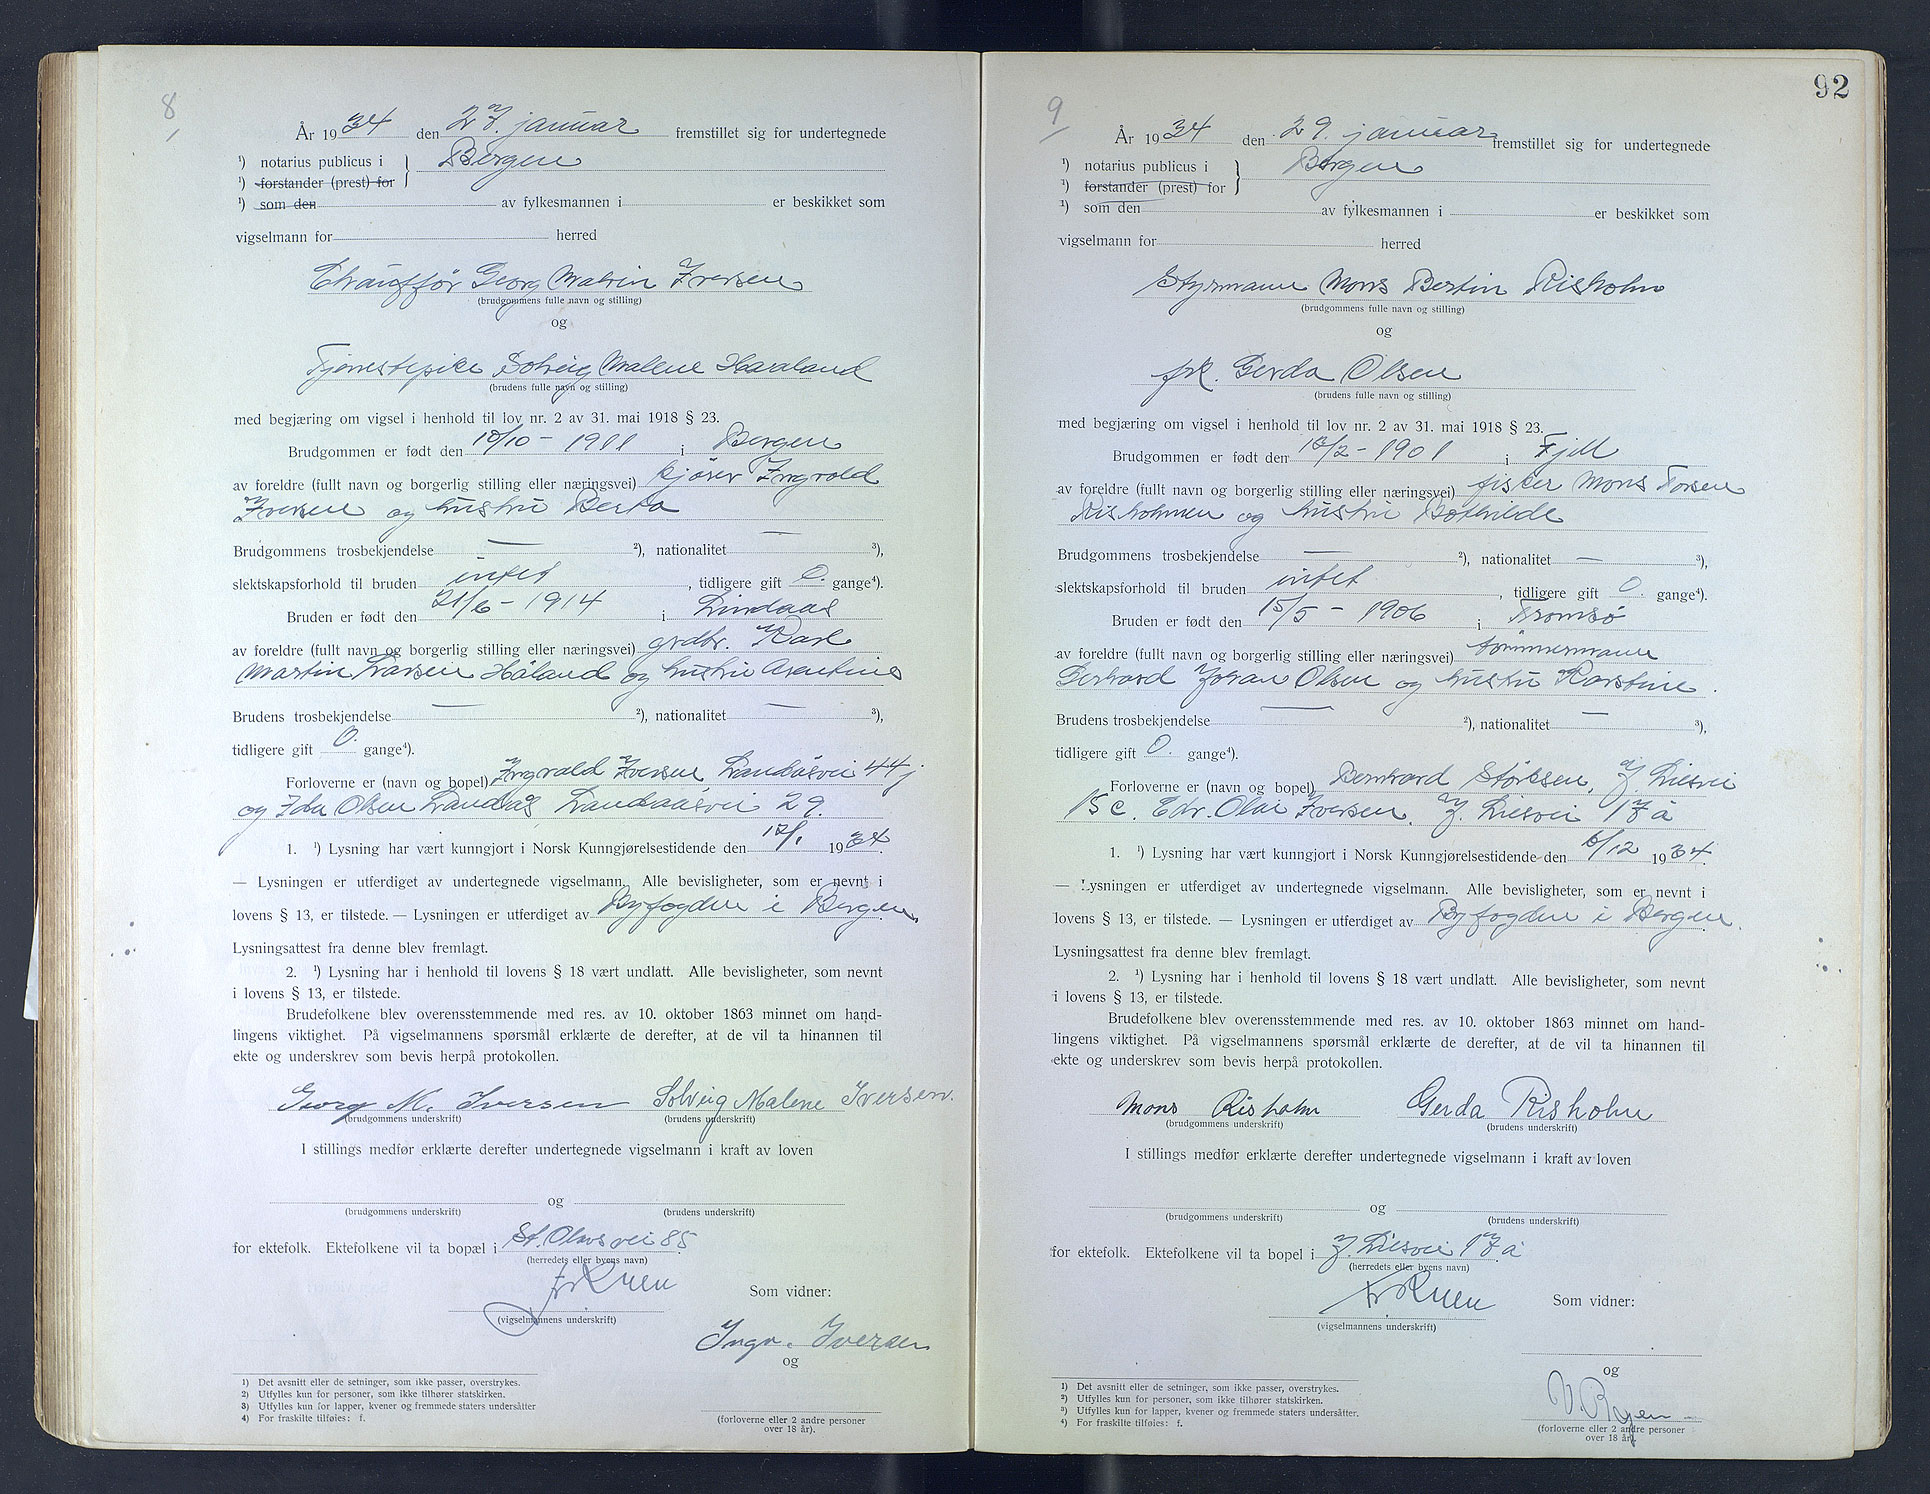 8
År 1934 den 27. januar fremstillet sig for undertegnede
¹) notarius publicus i } Bergen
¹) forstander (prest) for
¹) som den av fylkesmannen i er beskikket som
vigselmann for herred
Chauffør Georg Martin Iversen
(brudgommens fulle navn og stilling)
og
Tjenestepike Solveig Malene Haaland
(brudens fulle navn og stilling)
med begjæring om vigsel i henhold til lov nr. 2 av 31. mai 1918 § 23.
Brudgommen er født den 10/10 - 1911 i Bergen
av foreldre (fullt navn og borgerlig stilling eller næringsvei) kjører Ingvald
Iversen og hustru Berta
Brudgommens trosbekjendelse — ²), nationalitet — ³),
slektskapsforhold til bruden intet, tidligere gift 0. gange⁴).
Bruden er født den 21/6 - 1914 i Lindaas
av foreldre (fullt navn og borgerlig stilling eller næringsvei) grdbr. Karl
Martin Larsen Håland og hustru Arentine
Brudens trosbekjendelse — ²), nationalitet — ³),
tidligere gift 0. gange⁴).
Forloverne er (navn og bopel) Ingvald Iversen Landåsvei 44 j
og Olsen Landås, Landaasvei 29.
1. ¹) Lysning har vært kunngjort i Norsk Kunngjørelsestidende den 12/1 1934.
— Lysningen er utferdiget av undertegnede vigselmann. Alle bevisligheter, som er nevnt i
lovens § 13, er tilstede. — Lysningen er utferdiget av Byfogden i Bergen.
Lysningsattest fra denne blev fremlagt.
2. ¹) Lysning har i henhold til lovens § 18 vært undlatt. Alle bevisligheter, som nevnt
i lovens § 13, er tilstede.
Brudefolkene blev overensstemmende med res. av 10. oktober 1863 minnet om hand-
lingens viktighet. På vigselmannens spørsmål erklærte de derefter, at de vil ta hinannen til
ekte og underskrev som bevis herpå protokollen.
Georg M. Iversen Solveig Malene Iversen.
(brudgommens underskrift) (brudens underskrift)
I stillings medfør erklærte derefter undertegnede vigselmann i kraft av loven
og
(brudgommens underskrift) (brudens underskrift)
for ektefolk. Ektefolkene vil ta bopæl i St. Olavs vei 85.
(herredets eller byens navn)
Som vidner:
(vigselmannens underskrift)
Ingv. Iversen
og
1) Det avsnitt eller de setninger, som ikke passer, overstrykes.
2) Utfylles kun for personer, som ikke tilhører statskirken.
3) Utfylles kun for lapper, kvener og fremmede staters undersåtter
4) For fraskilte tilføies: f.
(forloverne eller 2 andre personer
over 18 år).
92
9
År 1934 den 29. januar fremstillet sig for undertegnede
¹) notarius publicus i } Bergen
¹) forstander (prest) for
¹) som den av fylkesmannen i er beskikket som
vigselmann for herred
Styrmann Mons Bertin Risholm
(brudgommens fulle navn og stilling)
og
frk. Gerda Olsen
(brudens fulle navn og stilling)
med begjæring om vigsel i henhold til lov nr. 2 av 31. mai 1918 § 23.
Brudgommen er født den 18/2 - 1901 i Fjell
av foreldre (fullt navn og borgerlig stilling eller næringsvei) fisker Mons Torsen
Risholmen og hustru Bothilde
Brudgommens trosbekjendelse — ²), nationalitet — ³),
slektskapsforhold til bruden intet, tidligere gift 0. gange⁴).
Bruden er født den 15/5 - 1906 i Tromsø
av foreldre (fullt navn og borgerlig stilling eller næringsvei) tømmermann
Gerhard Johan Olsen og hustru Karstine.
Brudens trosbekjendelse — ²), nationalitet — ³),
tidligere gift 0. gange⁴).
Forloverne er (navn og bopel) Bernhard Størksen, J. Liesvei
15 c. Edv. Olai Iversen. J. Liesvei 17 a
1. ¹) Lysning har vært kunngjort i Norsk Kunngjørelsestidende den 6/12 1934.
— Lysningen er utferdiget av undertegnede vigselmann. Alle bevisligheter, som er nevnt i
lovens § 13, er tilstede. — Lysningen er utferdiget av Byfogden i Bergen.
Lysningsattest fra denne blev fremlagt.
2. ¹) Lysning har i henhold til lovens § 18 vært undlatt. Alle bevisligheter, som nevnt
i lovens § 13, er tilstede.
Brudefolkene blev overensstemmende med res. av 10. oktober 1863 minnet om hand-
lingens viktighet. På vigselmannens spørsmål erklærte de derefter, at de vil ta hinannen til
ekte og underskrev som bevis herpå protokollen.
Mons Risholm Gerda Risholm
(brudgommens underskrift) (brudens underskrift)
I stillings medfør erklærte derefter undertegnede vigselmann i kraft av loven
og
(brudgommens underskrift) (brudens underskrift)
for ektefolk. Ektefolkene vil ta bopel i J. Liesvei 17 a
(herredets eller byens navn)
Som vidner:
(vigselmannens underskrift)
og
¹) Det avsnitt eller de setninger, som ikke passer, overstrykes.
²) Utfylles kun for personer, som ikke tilhører statskirken.
³) Utfylles kun for lapper, kvener og fremmede staters undersåtter.
⁴) For fraskilte tilføies: f.
(forloverne eller 2 andre personer
over 18 år).